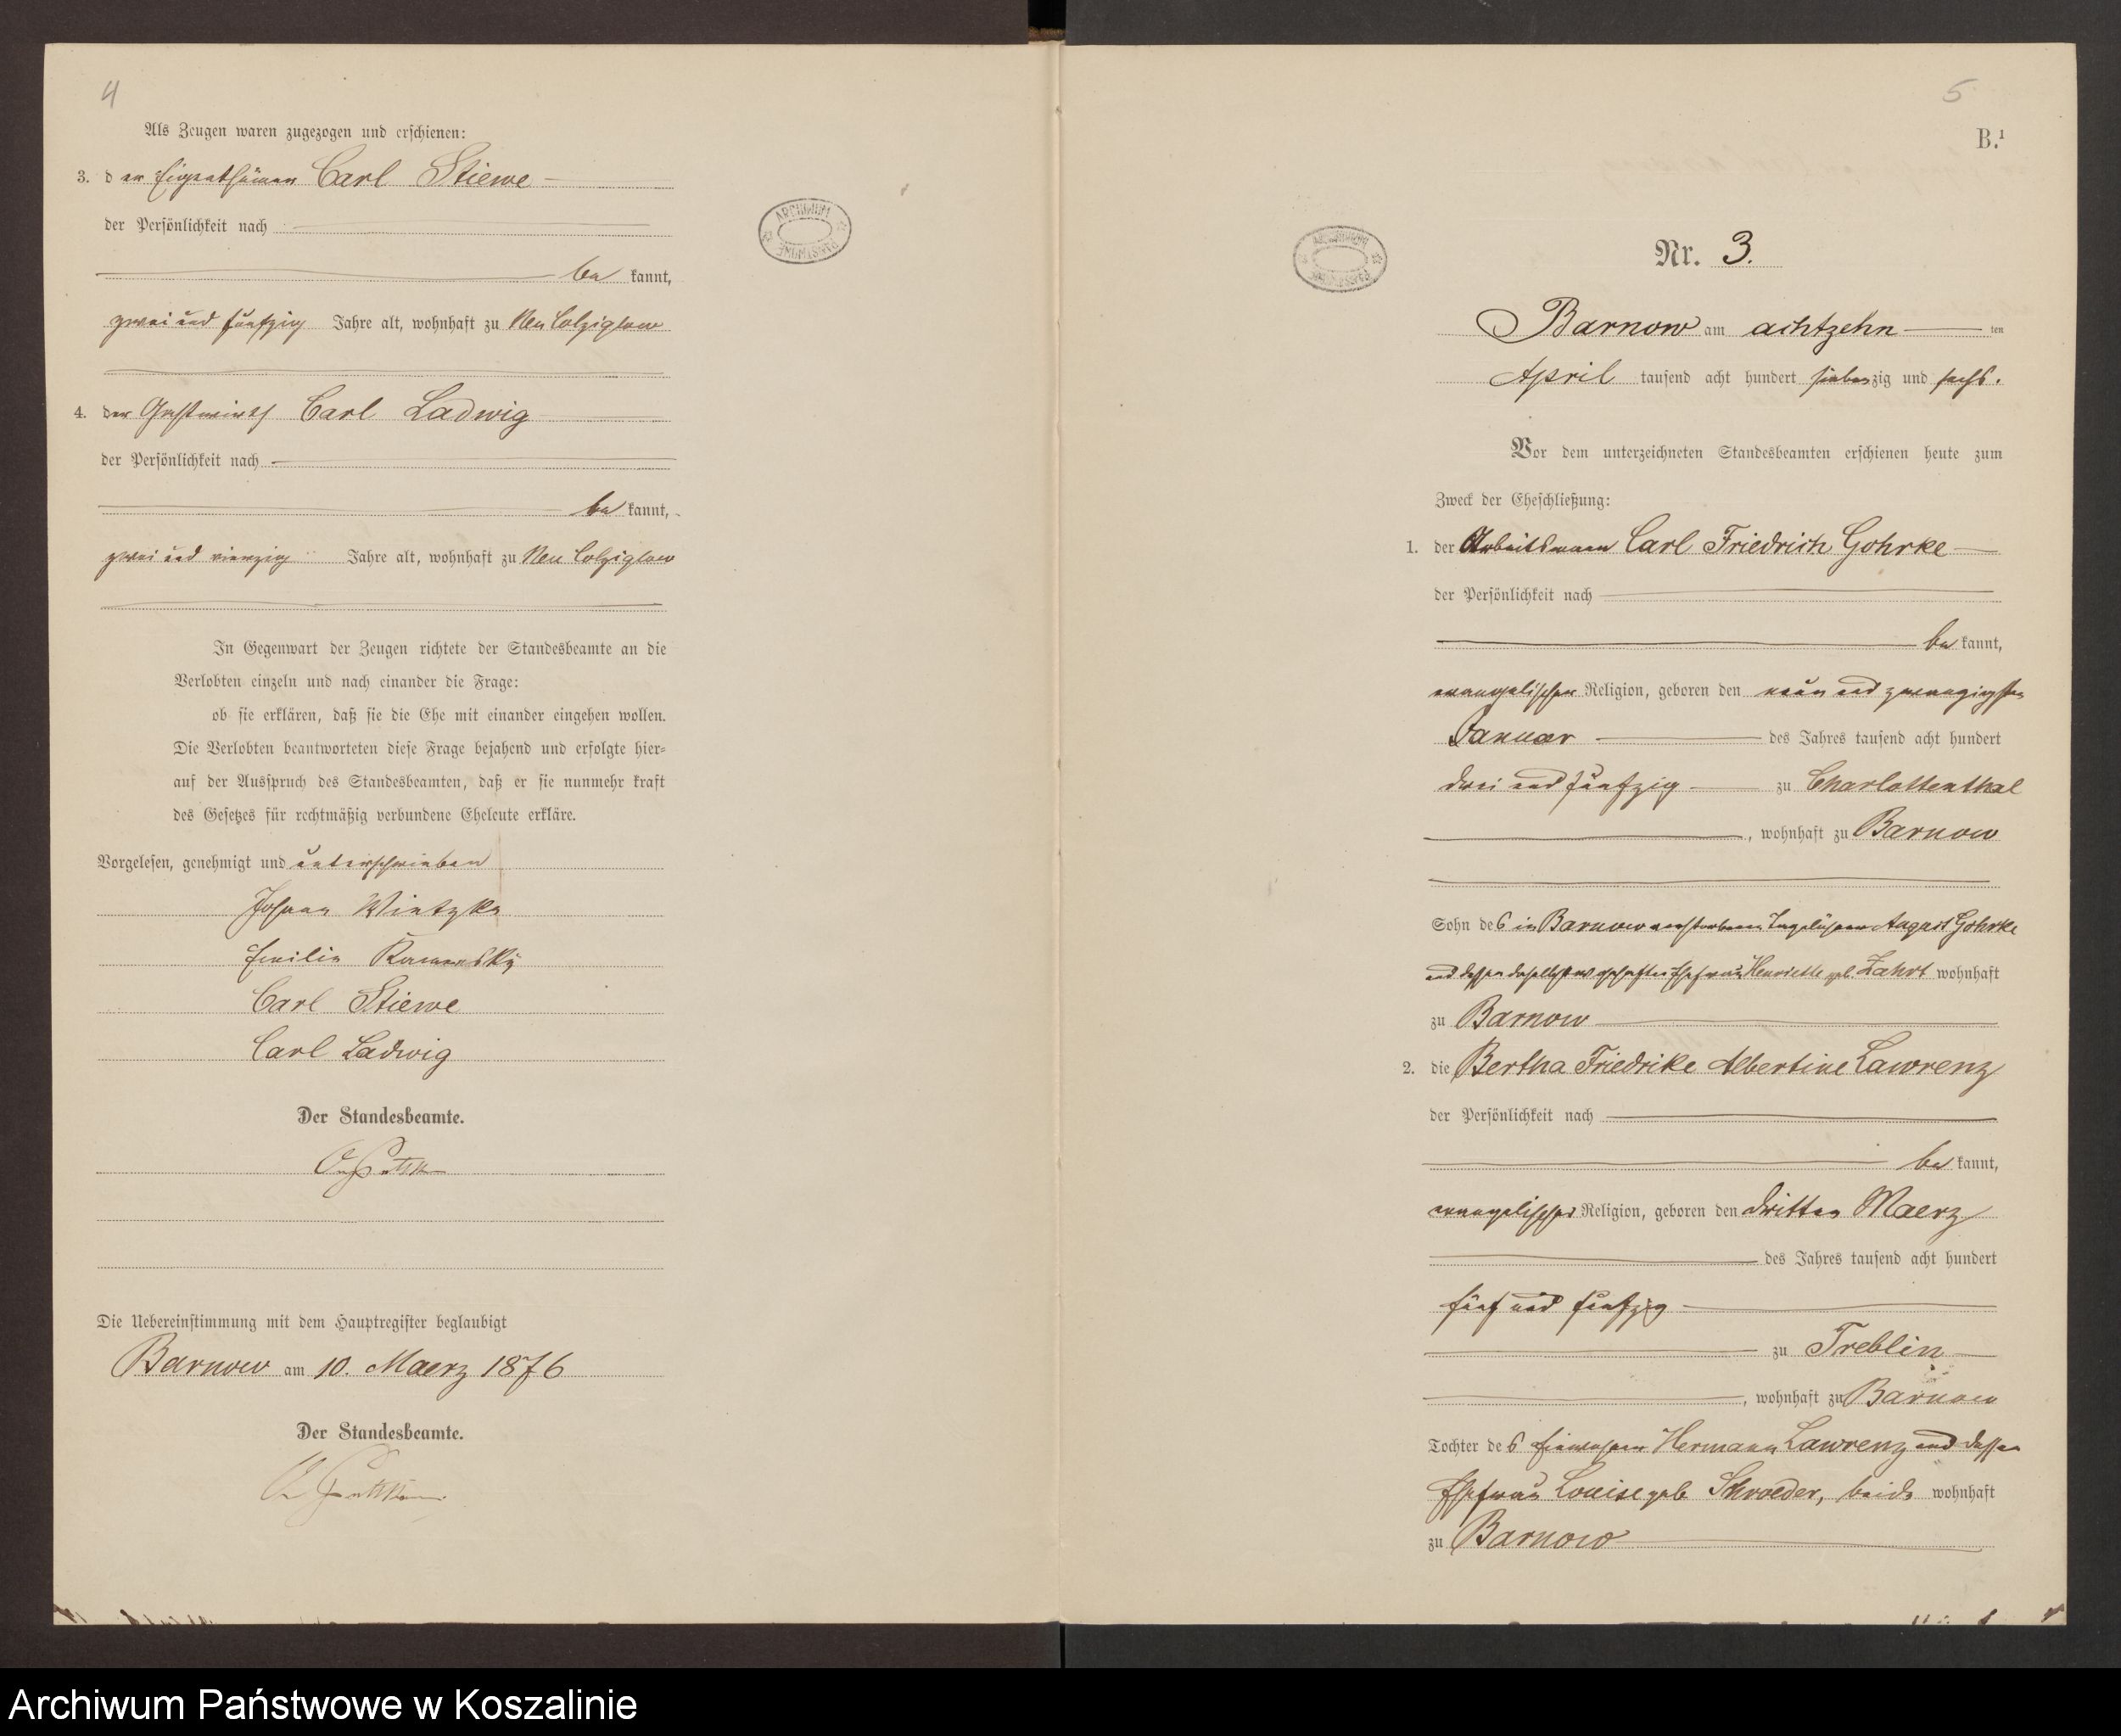 4
Als Zeugen waren zugezogen und erschienen:
3. der Eigenthümer Carl Stiewe
der Persönlichkeit nach
be kannt,
zwei und fünfzig Jahre alt, wohnhaft zu Neu Colziglow
4. der Gastwirth Carl Ladwig
der Persönlichkeit nach
be kannt,
zwei und vierzig Jahre alt, wohnhaft zu Neu Colziglow
In Gegenwart der Zeugen richtete der Standesbeamte an die
Verlobten einzeln und nach einander die Frage:
ob sie erklären, daß sie die Ehe mit einander eingehen wollen.
Die Verlobten beantworteten diese Frage bejahend und erfolgte hier-
auf der Ausspruch des Standesbeamten, daß er sie nunmehr kraft
des Gesetzes für rechtmäßig verbundene Eheleute erkläre.
Vorgelesen, genehmigt und unterschrieben
Johann Wietzke
Emilie
Carl Stiewe
Carl Ladwig
Der Standesbeamte.
Die Uebereinstimmung mit dem Hauptregister beglaubigt
Barnow am 10. Maerz 1876
Der Standesbeamte.
ARCHIWUM PAŃSTWOWE
5
B.1
ARCHIWUM PAŃSTWOWE
Nr. 3.
Barnow am achtzehn ten
April tausend acht hundert siebenzig und sechs.
Vor dem unterzeichneten Standesbeamten erschienen heute zum
Zweck der Eheschließung:
1. der Arbeitsmann Carl Friedrich Gohrke
der Persönlichkeit nach
be kannt,
evangelischer Religion, geboren den neun und zwanzigsten
Januar des Jahres tausend acht hundert
drei und fünfzig zu Charlottenthal
, wohnhaft zu Barnow
Sohn des in Barnow verstorbenen Tagelöhner August Gohrke
und dessen daselbst Ehefrau Henriette geb. Zahrt wohnhaft
zu Barnow
2. die Bertha Friedrike Albertine Lawrenz
der Persönlichkeit nach
be kannt,
evangelischer Religion, geboren den dritten Maerz
des Jahres tausend acht hundert
fünf und fünfzig
zu Treblin
, wohnhaft zu Barnow
Tochter des Einwohner Hermann Lawrenz und dessen
Ehefrau Louise geb Schroeder, beide wohnhaft
zu Barnow
Archiwum Państwowe w Koszalinie